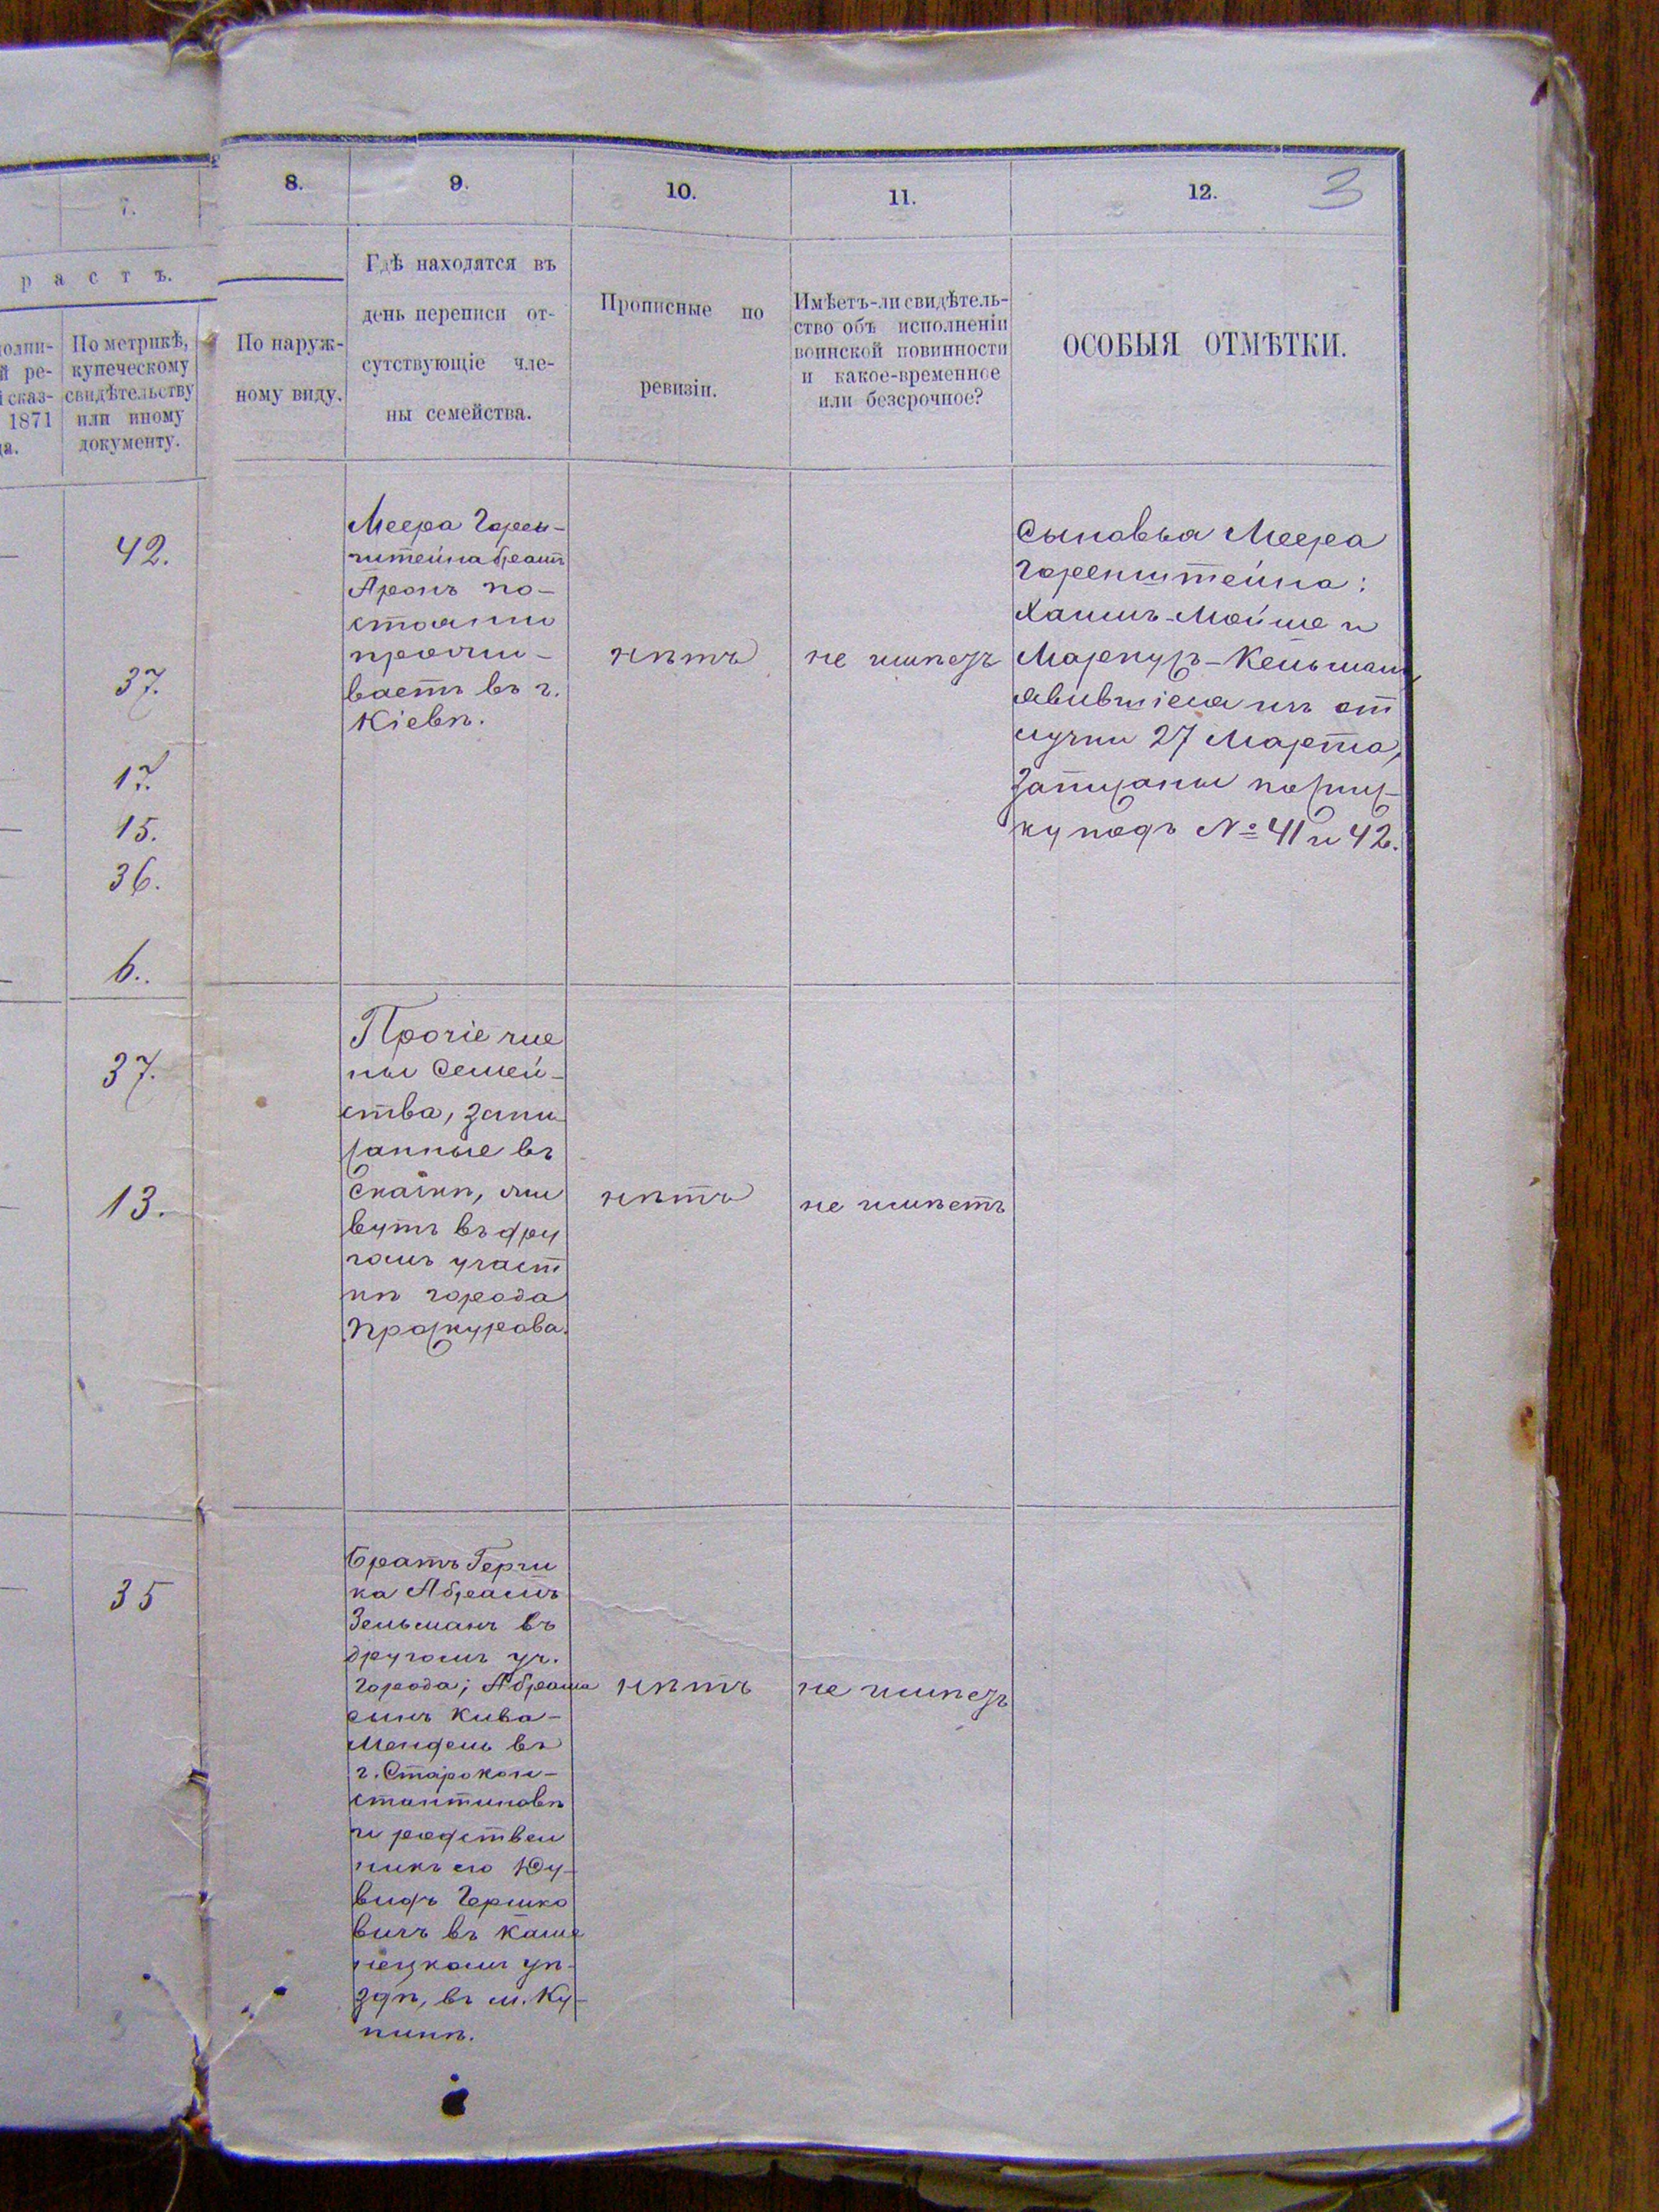 7.
8.
9.
10.
11.
12.
3
р а с т ъ.
По метрикѣ,
купеческому
свидѣтельству
или иному
документу.
1871
По наруж-
ному виду.
Гдѣ находятся въ
день переписи от-
сутствующіе чле-
ны семейства.
Прописные по
ревизіи.
Имѣетъ-ли свидѣтель-
ство объ исполненіи
воинской повинности
и какое-временное
или безсрочное?
ОСОБЫЯ ОТМѢТКИ.
42.
37.
17.
15.
36.
6.
Меера Горен-
штейна братъ
Аронъ по-
стоянно
прожи-
ваетъ въ г.
Кіевѣ.
нѣтъ
не имѣетъ
Сыновья Меера
Горенштейна:
Хаимъ-Мойше и
явившіеся изъ от
лучки 27 Марта,
записаны по спис-
ку подъ № 41 и 42.
37.
13.
Прочіе чле
ны семей-
ства, запи
санные въ
Сказкѣ, жи
вутъ въ дру
гомъ участ
кѣ города
Проскурова.
нѣтъ
не имѣетъ
35
Братъ Герш
ка Абрамъ
Зельманъ въ
другомъ уч.
города; Абрама
сынъ Кива-
Мендель въ
г. Старокон-
стантиновѣ
и родствен
никъ его
Гершко
вичъ въ Каме
нецкомъ уѣ-
здѣ, въ м. Ку-
пинѣ.
нѣтъ
не имѣетъ